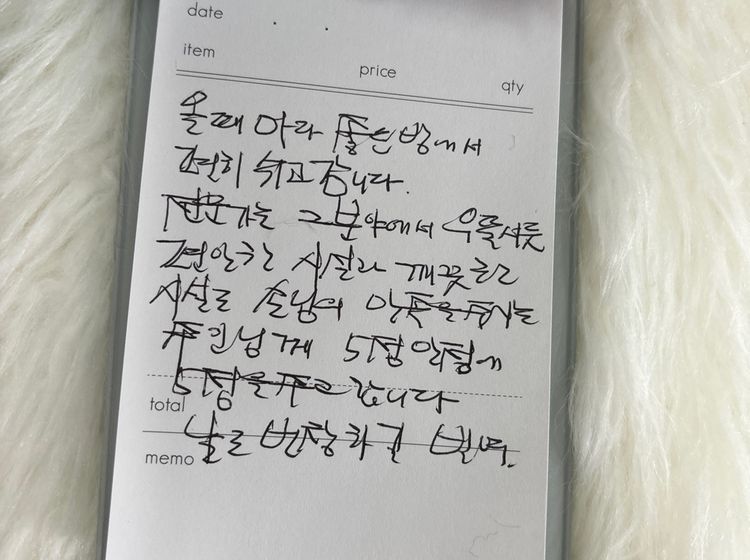 date
item price qty
올때 마다 좋은방에서
편히 쉬고 갑니다.
전문가는 그분야에서 우뚝서듯
편안한 시설과 깨끗한
시설로 손님의 만족을 주시는
주인님께 5점 만점에
5점을 주고 갑니다
total
날로 번창하길 빌며.
memo